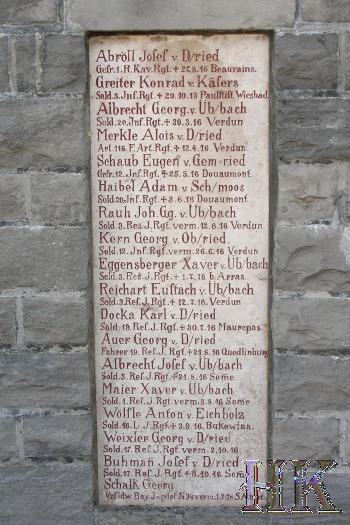 Abröll Josef v. D/ried
Gefr. 1. R. Kav. Rgt. + 27.8.16 Beaurains.
Greiter Konrad v. Käfers
Sold. 3. Jnf. Rgt. + 29.10.15 Paulstift Wiesbad.
Albrecht Georg v. Ub/bach
Sold. 20. Jnf. Rgt. + 30.3.16 Verdun
Merkle Alois v. D/ried
Art. 116. F. Art. Rgt. + 12.4.16 Verdun.
Schaub Eugen v. Gem-ried
Gefr. 12. Jnf. Rgt. + 25.5.16 Douaumont.
Haibel Adam v. Sch/moos
Sold 20 Jnf. Rgt. + 8.6.16 Douaumont.
Rauh Joh. Gg. v. Ub/bach
Sold. 8. Res. J. Rgt. verm. 12.6.16 Verdun
Kern Georg v. Ob/ried.
Sold. 12. Jnf. Rgt. verm. 26.6.16 Verdun
Eggensberger Xaver v. Ub/bach
Sold. 3. Res. J. Rgt. + 1.7.16 b. Arras.
Reichart Eustach v. Ub/bach
Sold. 3. Ref. J. Rgt. + 12.7.16. Verdun
Docka Karl v. D/ried
Sold. 19. Ref. J. Rgt. + 30.7.16 Maurepas.
Auer Georg v. D/ried
Fahrer 19. Ref. J. Rgt. + 21.8.16 Quedlinburg
Albrecht Josef v. Ub/bach
Sold. 3. Ref. J. Rgt. + 21.8.16 Some.
Maier Xaver v. Ub/bach
Sold. 1. Ref. J. Rgt. verm. 3.9.16 Some
Wölfle Anton v. Eichholz
Sold. 16. L. J. Rgt. + 3.9.16. Bukowina.
Weixler Georg v. D/ried
Sold. 17. Ref. J. Rgt verm. 2.10.16.
Buhman Josef v. D/ried
Sold. 12. Ref. J. Rgt. + 8.10.16. Some
Schalk Georg
HK